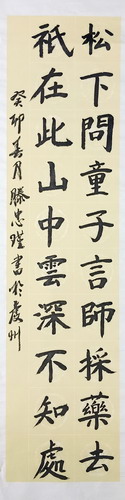 松下問童子言師採藥去
祇在此山中雲深不知處
癸卯春月滕忠凯書於虔州